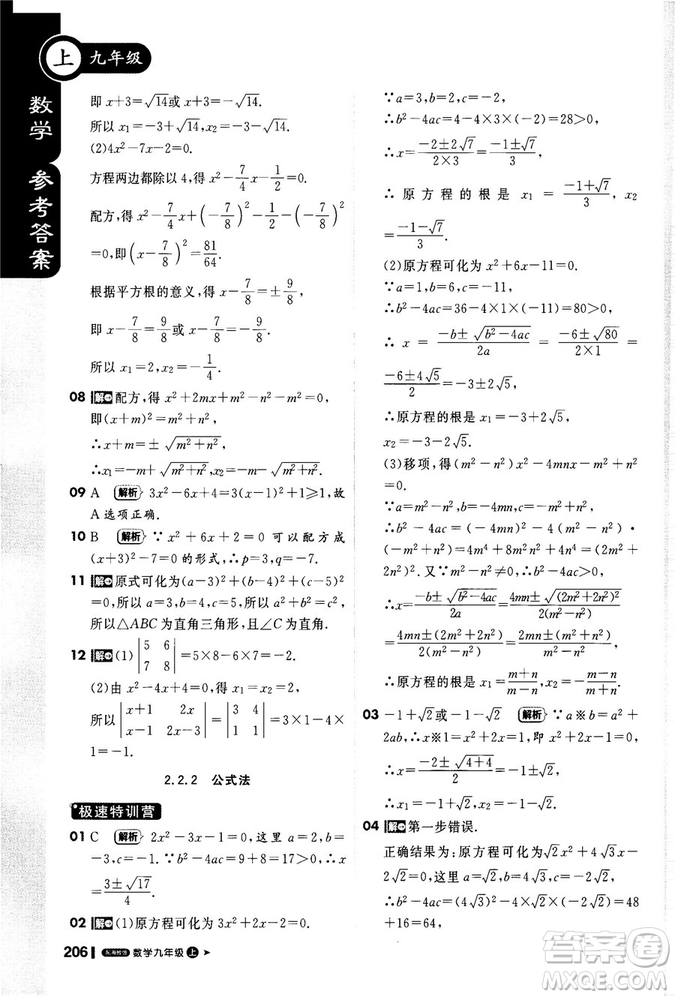 上 九年级
数学 参考答案
即 x+3=√14或 x+3=-√14.
所以 x₁=-3+√14, x₂=-3-√14.
(2)4x²-7x-2=0.
方程两边都除以 4,得 x²-7/4x-1/2=0.
配方,得 x²-7/4x+(-7/8)²-(-7/8)²-1/2
=0,即(x-7/8)²=81/64.
根据平方根的意义,得 x-7/8=±9/8,
即 x-7/8=9/8或 x-7/8=-9/8.
所以 x₁=2, x₂=-1/4.
08 解 配方,得 x²+2mx+m²-m²+n²=0,
即(x+m)²=m²-n²,
∴x+m=±√(m²-n²),
∴x₁=-m+√(m²-n²), x₂=-m-√(m²-n²).
09 A 解析 3x²-6x+4=3(x-1)²+1≥1,故
A 选项正确.
10 B 解析 ∵x²+6x+2=0 可以配方成
(x+3)²-7=0 的形式,∴p=3,q=-7.
11 解 原式可化为(a-3)²+(b-4)²+(c-5)²
=0,所以 a=3,b=4,c=5,满足 a²+b²=c²,
所以△ABC 为直角三角形.
12 解 (1) |5 6; 7 8| =5×8-6×7=-2.
(2)由 x²-2x-4=0,得 x²-2x=4.
所以 |x+1 2x; x-1 2x-3| = |3 4; 1 1| =3×1-4×1
=-1.
2.2.2 公式法
极速特训营
01 C 解析 2x²-3x-1=0,这里 a=2,b=
-3,c=-1.∵b²-4ac=9+8=17,∴x=
(3±√17)/4.
02 解 (1)原方程可化为 3x²+2x-2=0,
206 数学九年级 上
∵a=3,b=2,c=-2,
∴b²-4ac=4-4×3×(-2)=28>0,
∴x=(-2±2√7)/(2×3)=(-1±√7)/3.
∴ 原方程的根是 x₁=(-1+√7)/3, x₂=
(-1-√7)/3.
(2)原方程可化为 x²+6x-11=0.
∵a=1,b=6,c=-11,
∴b²-4ac=36-4×1×(-11)=80>0,
∴ x = (-b±√(b²-4ac))/2a = (-6±√80)/(2×1) =
(-6±4√5)/2.
∴原方程的根是 x₁=-3+2√5,
x₂=-3-2√5.
(3)移项,得(m²-n²)x²-4mnx-m²+n²=0.
∵a=m²-n²,b=-4mn,c=-m²+n²,
∴b²-4ac=(-4mn)²-4(m²-n²)·
(-m²+n²)=4m⁴+8m²n²+4n⁴=(2m²+
2n²)².又∵m²-n²≠0,
∴x=(-b±√(b²-4ac))/2a=(4mn±√(2m²+2n²)²)/2(m²-n²)
=(4mn±(2m²+2n²))/2(m²-n²)=(2mn±(m²+n²))/(m²-n²).
∴原方程的根是 x₁=(m+n)/(m-n), x₂=-(m-n)/(m+n).
03 -1+√2或-1-√2 解析 ∵a※b=a²+
2ab,∴x※1=x²+2x=1,即 x²+2x-1=
0.∴x=(-2±√(4+4))/2=-1±√2.
04 解 第一步错误.
正确结果为:原方程可化为√2x²+4√3x
-2√2=0.∵a=√2,b=4√3,c=-2√2,
∴b²-4ac=(4√3)²-4×√2×(-2√2)=48
+16=64,